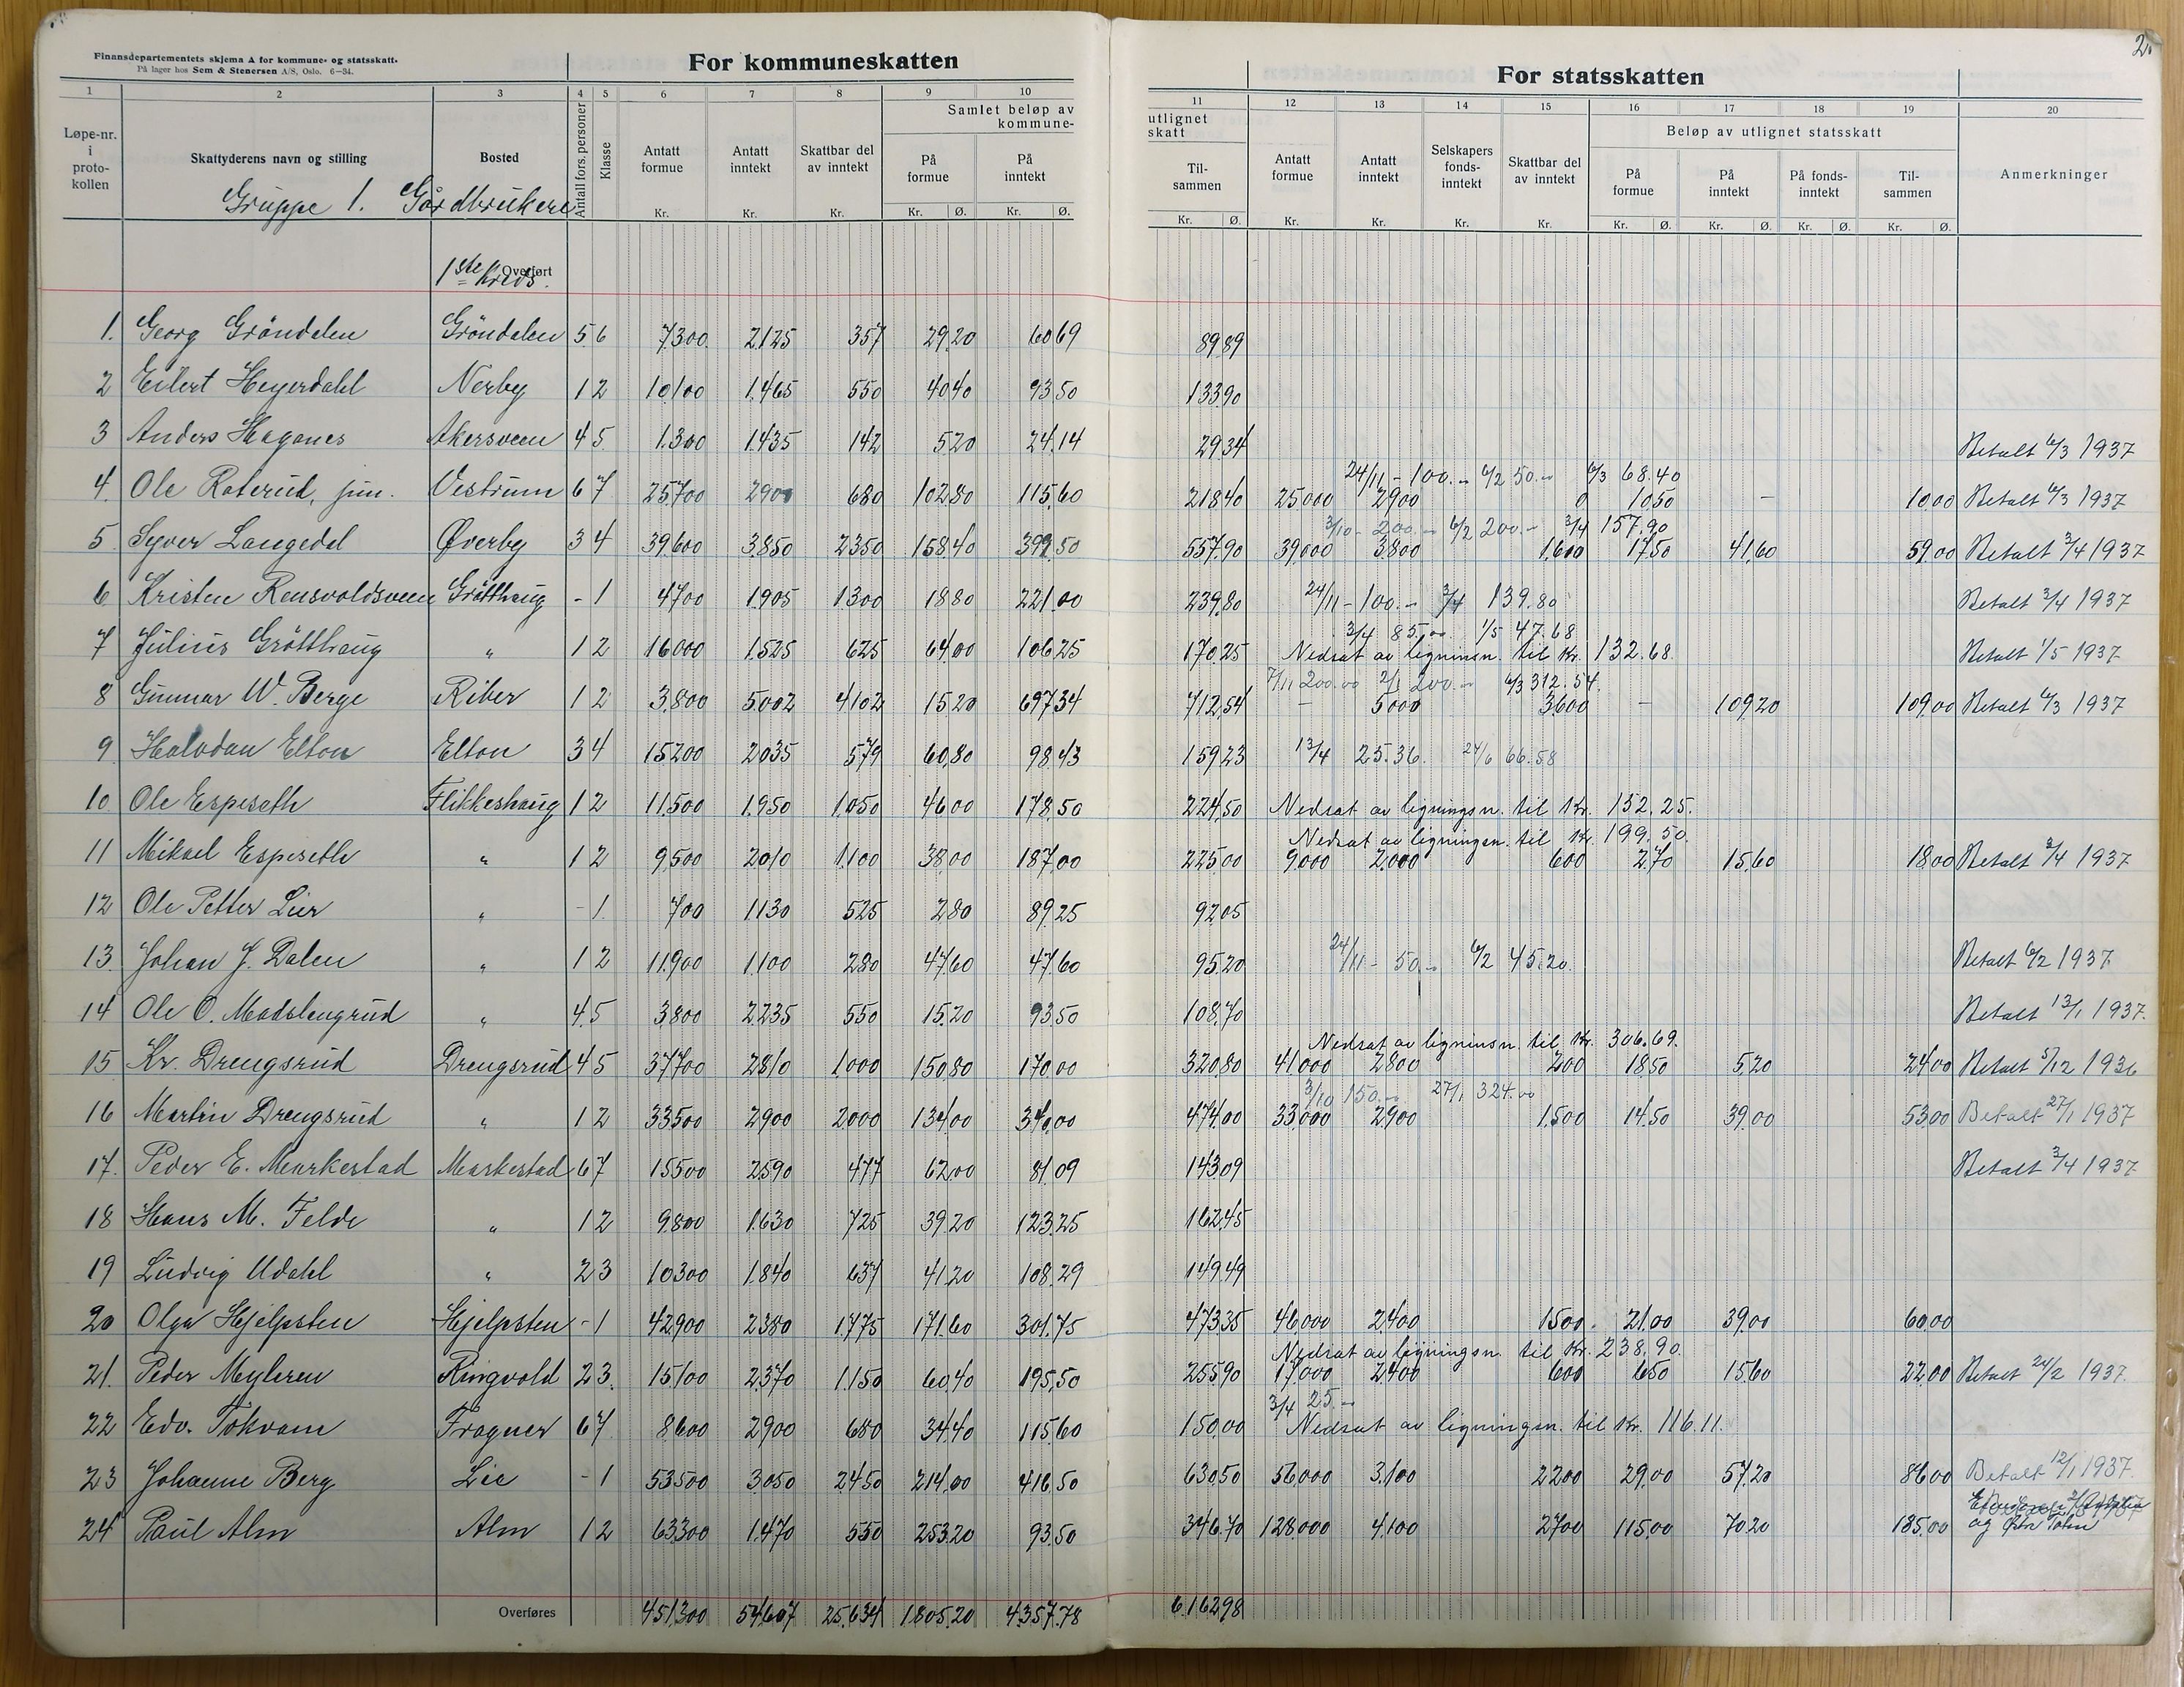 2.
Finansdepartementets skjema A for kommune- og statsskatt.
På lager hos Sem & Stenersen A/S, Oslo. 6-34.
For kommuneskatten
For statsskatten
1 2 3 4 5 6 7 8 9 10 11 12 13 14 15 16 17 18 19 20
Samlet beløp av utlignet
kommune- skatt
Beløp av utlignet statsskatt
Løpe-nr. i proto-kollen
Skattyderens navn og stilling
Bosted
Antall fors. personer
Klasse
Antatt formue
Antatt inntekt
Skattbar del av inntekt
På formue
På inntekt
Til-sammen
Antatt formue
Antatt inntekt
Selskapers fonds-inntekt
Skattbar del av inntekt
På formue
På inntekt
På fonds-inntekt
Til-sammen
Anmerkninger
Kr. Kr. Kr. Kr. Ø. Kr. Ø. Kr. Ø. Kr. Kr. Kr. Kr. Kr. Ø. Kr. Ø. Kr. Ø. Kr. Ø.
Gruppe 1. Gårdbrukere
Overført
1ste Kreds.
1. Georg Gröndalen Gröndalen 5 6 7300 2125 357 29 20 60 69 89 89
2 Eilert Heyerdahl Nerby 1 2 10100 1465 550 40 40 93 50 133 90
3 Anders Haganes Akersveen 4 5 1300 1435 142 5 20 24 14 29 34 Betalt 6/3 1937
24/11 - 100.- 6/2 50.- 6/3 68.40
4. Ole Roterud, jun. Vestrum 6 7 25700 2900 680 102 80 115 60 218 40 25000 2900 0 10 50 - 10 00 Betalt 6/3 1937
3/10 - 200.- 6/2 200.- 3/4 157.90
5 Syver Langedal Øverby 3 4 39600 3850 2350 158 40 399 50 557 90 39000 3800 1600 17 50 41 60 59 00 Betalt 3/4 1937
6. Kristen Rensvoldsveen Grötthaug - 1 4700 1905 1300 18 80 221 00 239 80 24/11 - 100.- 3/4 139.80 Betalt 3/4 1937
3/4 85.00 1/5 47.68
7 Julius Grötthaug " 1 2 16000 1525 625 64 00 106 25 170 25 Nedsat av ligningsn. til Kr. 132.68. Betalt 1/5 1937
7/11 200.00 2/1 200.- 6/3 312.54.
8 Gunnar W. Berge Riber 1 2 3800 5002 4102 15 20 697 34 712 54 - 5000 3600 - 109 20 109 00 Betalt 6/3 1937
9 Halvdan Elton Elton 3 4 15200 2035 579 60 80 98 43 159 23 13/4 25.36. 24/6 66.58
10 Ole Espeseth Flikkeshaug 1 2 11500 1950 1050 46 00 178 50 224 50 Nedsat av ligningsn. til Kr. 152.25.
Nedsat av ligningsn. til Kr. 199.50.
11 Mikael Espeseth " 1 2 9500 2010 1100 38 00 187 00 225 00 9000 2000 600 2 70 15 60 18 00 Betalt 3/4 1937
12 Ole Petter Lier " - 1 700 1130 525 2 80 89 25 92 05
13. Johan J. Dalen " 1 2 11900 1100 280 47 60 47 60 95 20 24/11 - 50.- 6/2 45.20. Betalt 6/2 1937
14 Ole O. Madslengrud " 4 5 3800 2235 550 15 20 93 50 108 70 Betalt 13/1 1937.
Nedsat av ligningsn. til Kr. 306.69.
15 Kr. Drengsrud Drengsrud 4 5 37700 2810 1000 150 80 170 00 320 80 41000 2800 200 18 50 5 20 24 00 Betalt 5/12 1936
3/10 150.- 27/1 324.00
16 Martin Drengsrud " 1 2 33500 2900 2000 134 00 340 00 474 00 33000 2900 1500 14 50 39 00 53 00 Betalt 27/1 1937
17. Peder E. Markestad Markestad 6 7 15500 2590 477 62 00 81 09 143 09 Betalt 3/4 1937
18 Hans M. Felde " 1 2 9800 1630 725 39 20 123 25 162 45
19 Ludvig Udahl " 2 3 10300 1840 637 41 20 108 29 149 49
20 Olga Hjelpsten Hjelpsten - 1 42900 2380 1775 171 60 301 75 473 35 46000 2400 1500 21 00 39 00 60 00
Nedsat av ligningsn. til Kr. 238.90.
21. Peder Myhren Ringvold 2 3 15100 2370 1150 60 40 195 50 255 90 17000 2400 600 6 50 15 60 22 00 Betalt 24/2 1937.
3/4 25.-
22 Edv. Tokvam Frogner 6 7 8600 2900 680 34 40 115 60 150 00 Nedsat av ligningsn. til Kr. 116.11.
23 Johanne Berg Lie - 1 53500 3050 2450 214 00 416 50 630 50 56000 3100 2200 29 00 57 20 86 00 Betalt 12/1 1937.
24 Paul Alm Alm 1 2 63300 1470 550 253 20 93 50 346 70 128000 4100 2700 115 00 70 20 185 00 og
Overføres 451300 54607 25634 1805 20 4357 78 6162 98